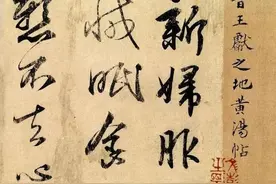 晉王獻之地黃湯帖
新婦服
減眠食
懸不去心